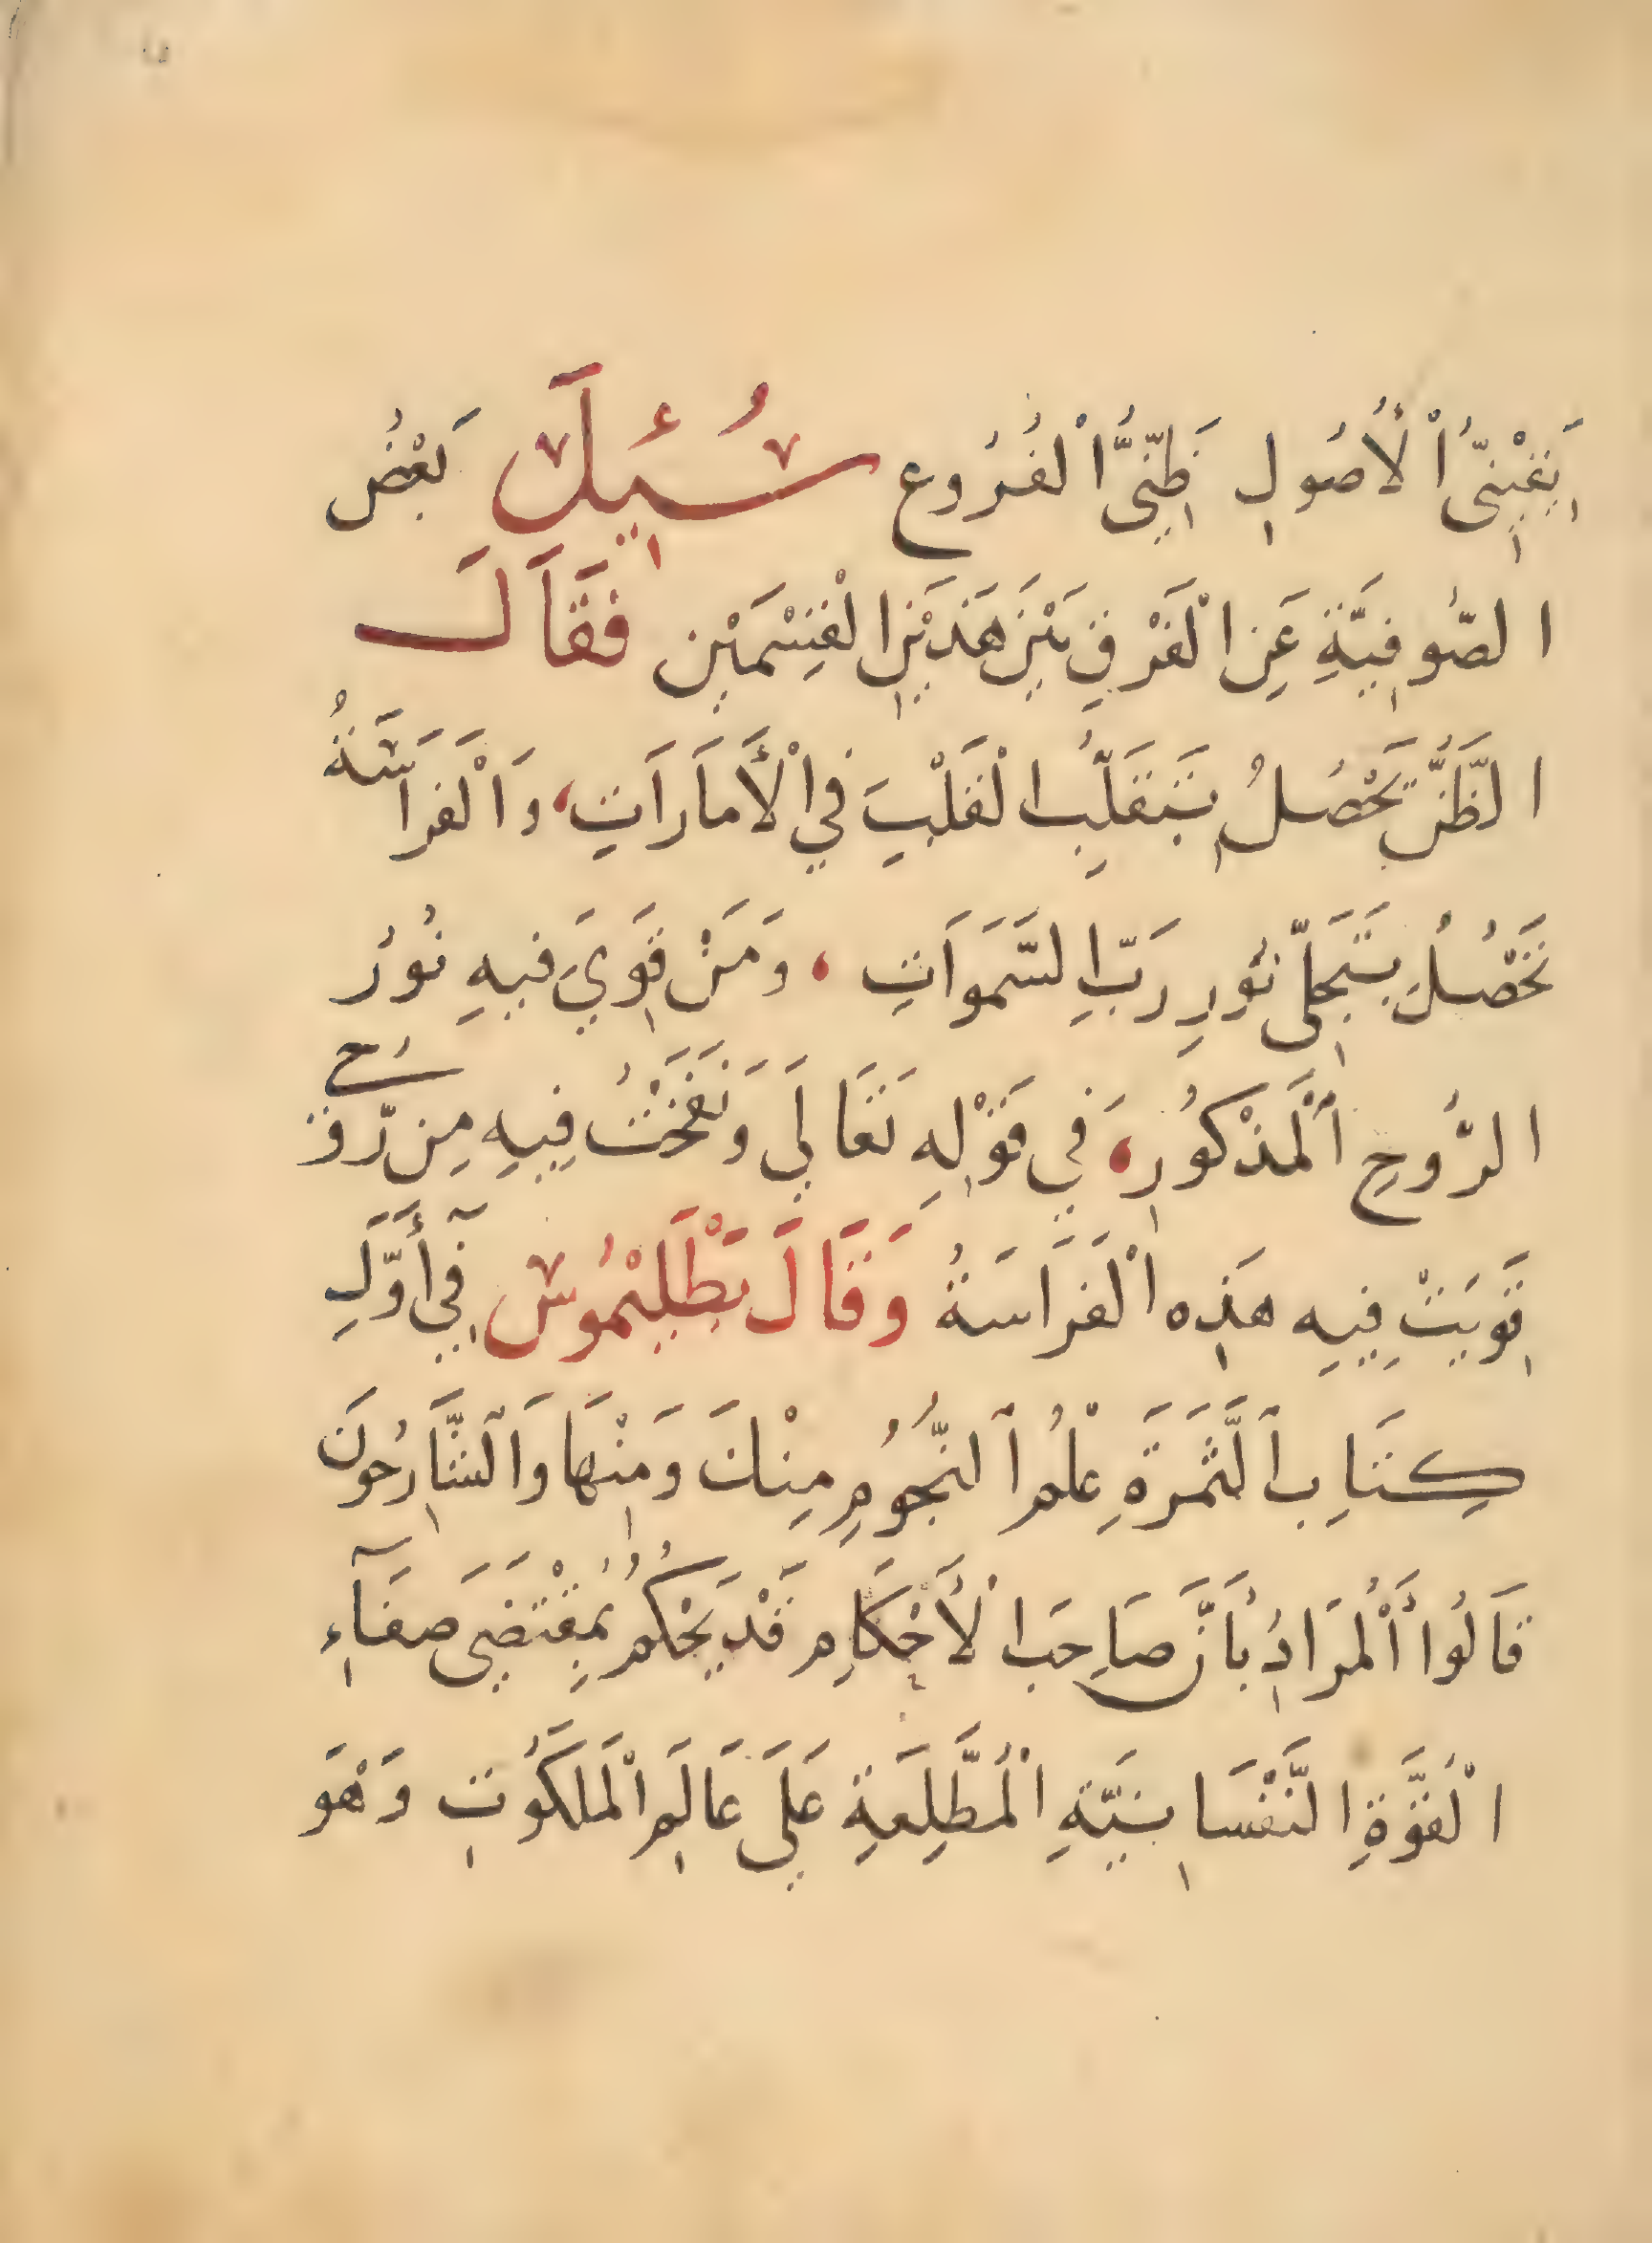 يَقِيْنِيُّ اْلأُصُولِ ظَنِّيُّ اْلفُرُوع سُئِلَ بَعْضُ
الصُّوفِيَّةِ عَنِ الْفَرْقِ بَيْنَ هَذَيْنِ الْقِسْمَيْنِ فَقَالَ
الظَّنُّ يَحْصُلُ بِتَقَلُّبِ الْقَلْبِ فِي اْلأَمَارَاتِ، وَالْفِرَاسَةُ
تَحْصُلُ بِتَجَلِّي نُورِ رَبِّ السَّمَوَاتِ، وَمَنْ قَوِيَ فِيهِ نُورُ
الرُّوحِ اْلمَذْكُورِ، فِي قَوْلِهِ تَعَالَي وَنَفَخْتُ فِيهِ مِن رُّوحِي
قَوِيَتْ فِيهِ هَذِهِ اْلفِرَاسَةُ وَقَالَ بَطْلَيْمُوسُ فِي أَوَّلِ
كِتَابِ الثَّمَرَةِ عِلْمُ النُّجُومِ مِنْكَ وَمِنْهَا وَالشَّارِحُونَ
قَالُوا اْلمُرَادُ بِأَنَّ صَاحِبَ اْلأَحْكَامِ قَدْ يَحْكُمُ بِمُقْتَضَى صَفَآءِ
الْقُوَّةِ النَّفْسَانِيَّةِ الْمُطَّلِعَةِ عَلَي عَالَمِ اْلمَلَكُوتِ وَهُوَ